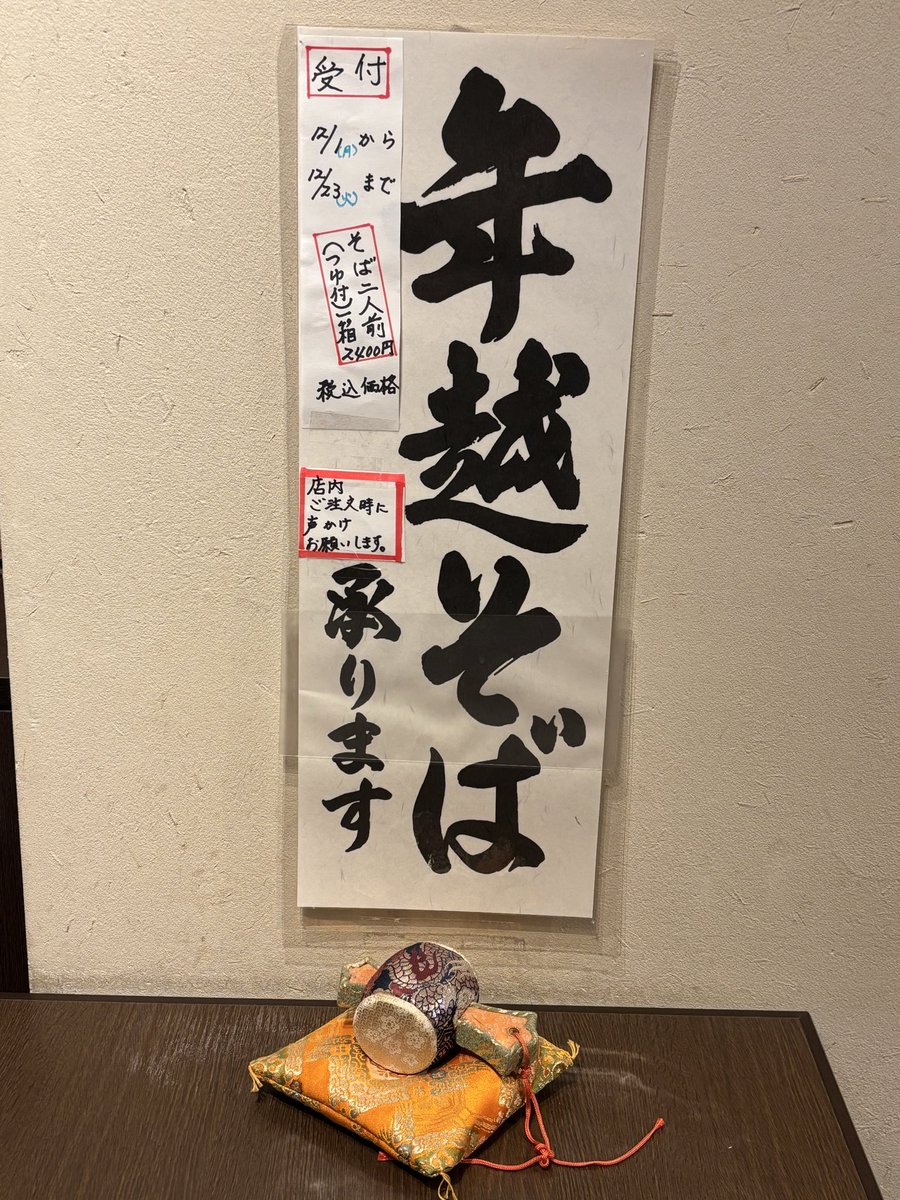 年越そば
承ります
受付
12/1(月)から
12/23(火)まで
そば二人前
(つゆ付)一箱
2400円
税込価格
店内
ご注文時に
声かけ
お願いします。